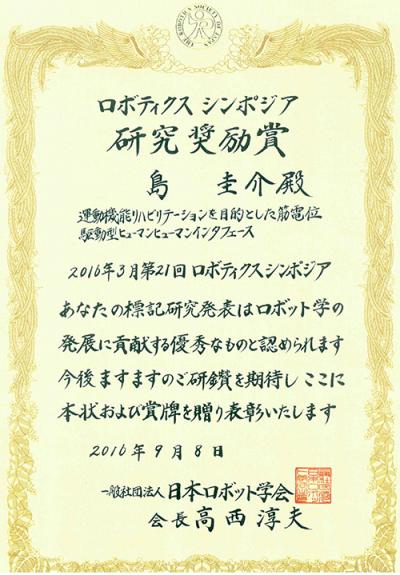 ロボティクス シンポジア
研究奨励賞
島 圭介殿
運動機能リハビリテーションを目的とした筋電位
駆動型ヒューマンヒューマンインタフェース
2016年3月第21回ロボティクスシンポジア
あなたの標記研究発表はロボット学の
発展に貢献する優秀なものと認められます
今後ますますのご研鑽を期待し ここに
本状および賞牌を贈り表彰いたします
2016年9月8日
一般社団法人 日本ロボット学会
会長 高西淳夫